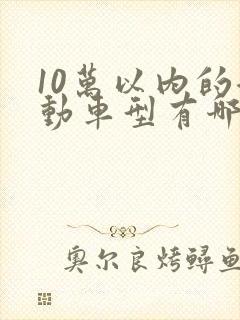 10萬以内的
動車型有哪
奥尔良烤鲟鱼